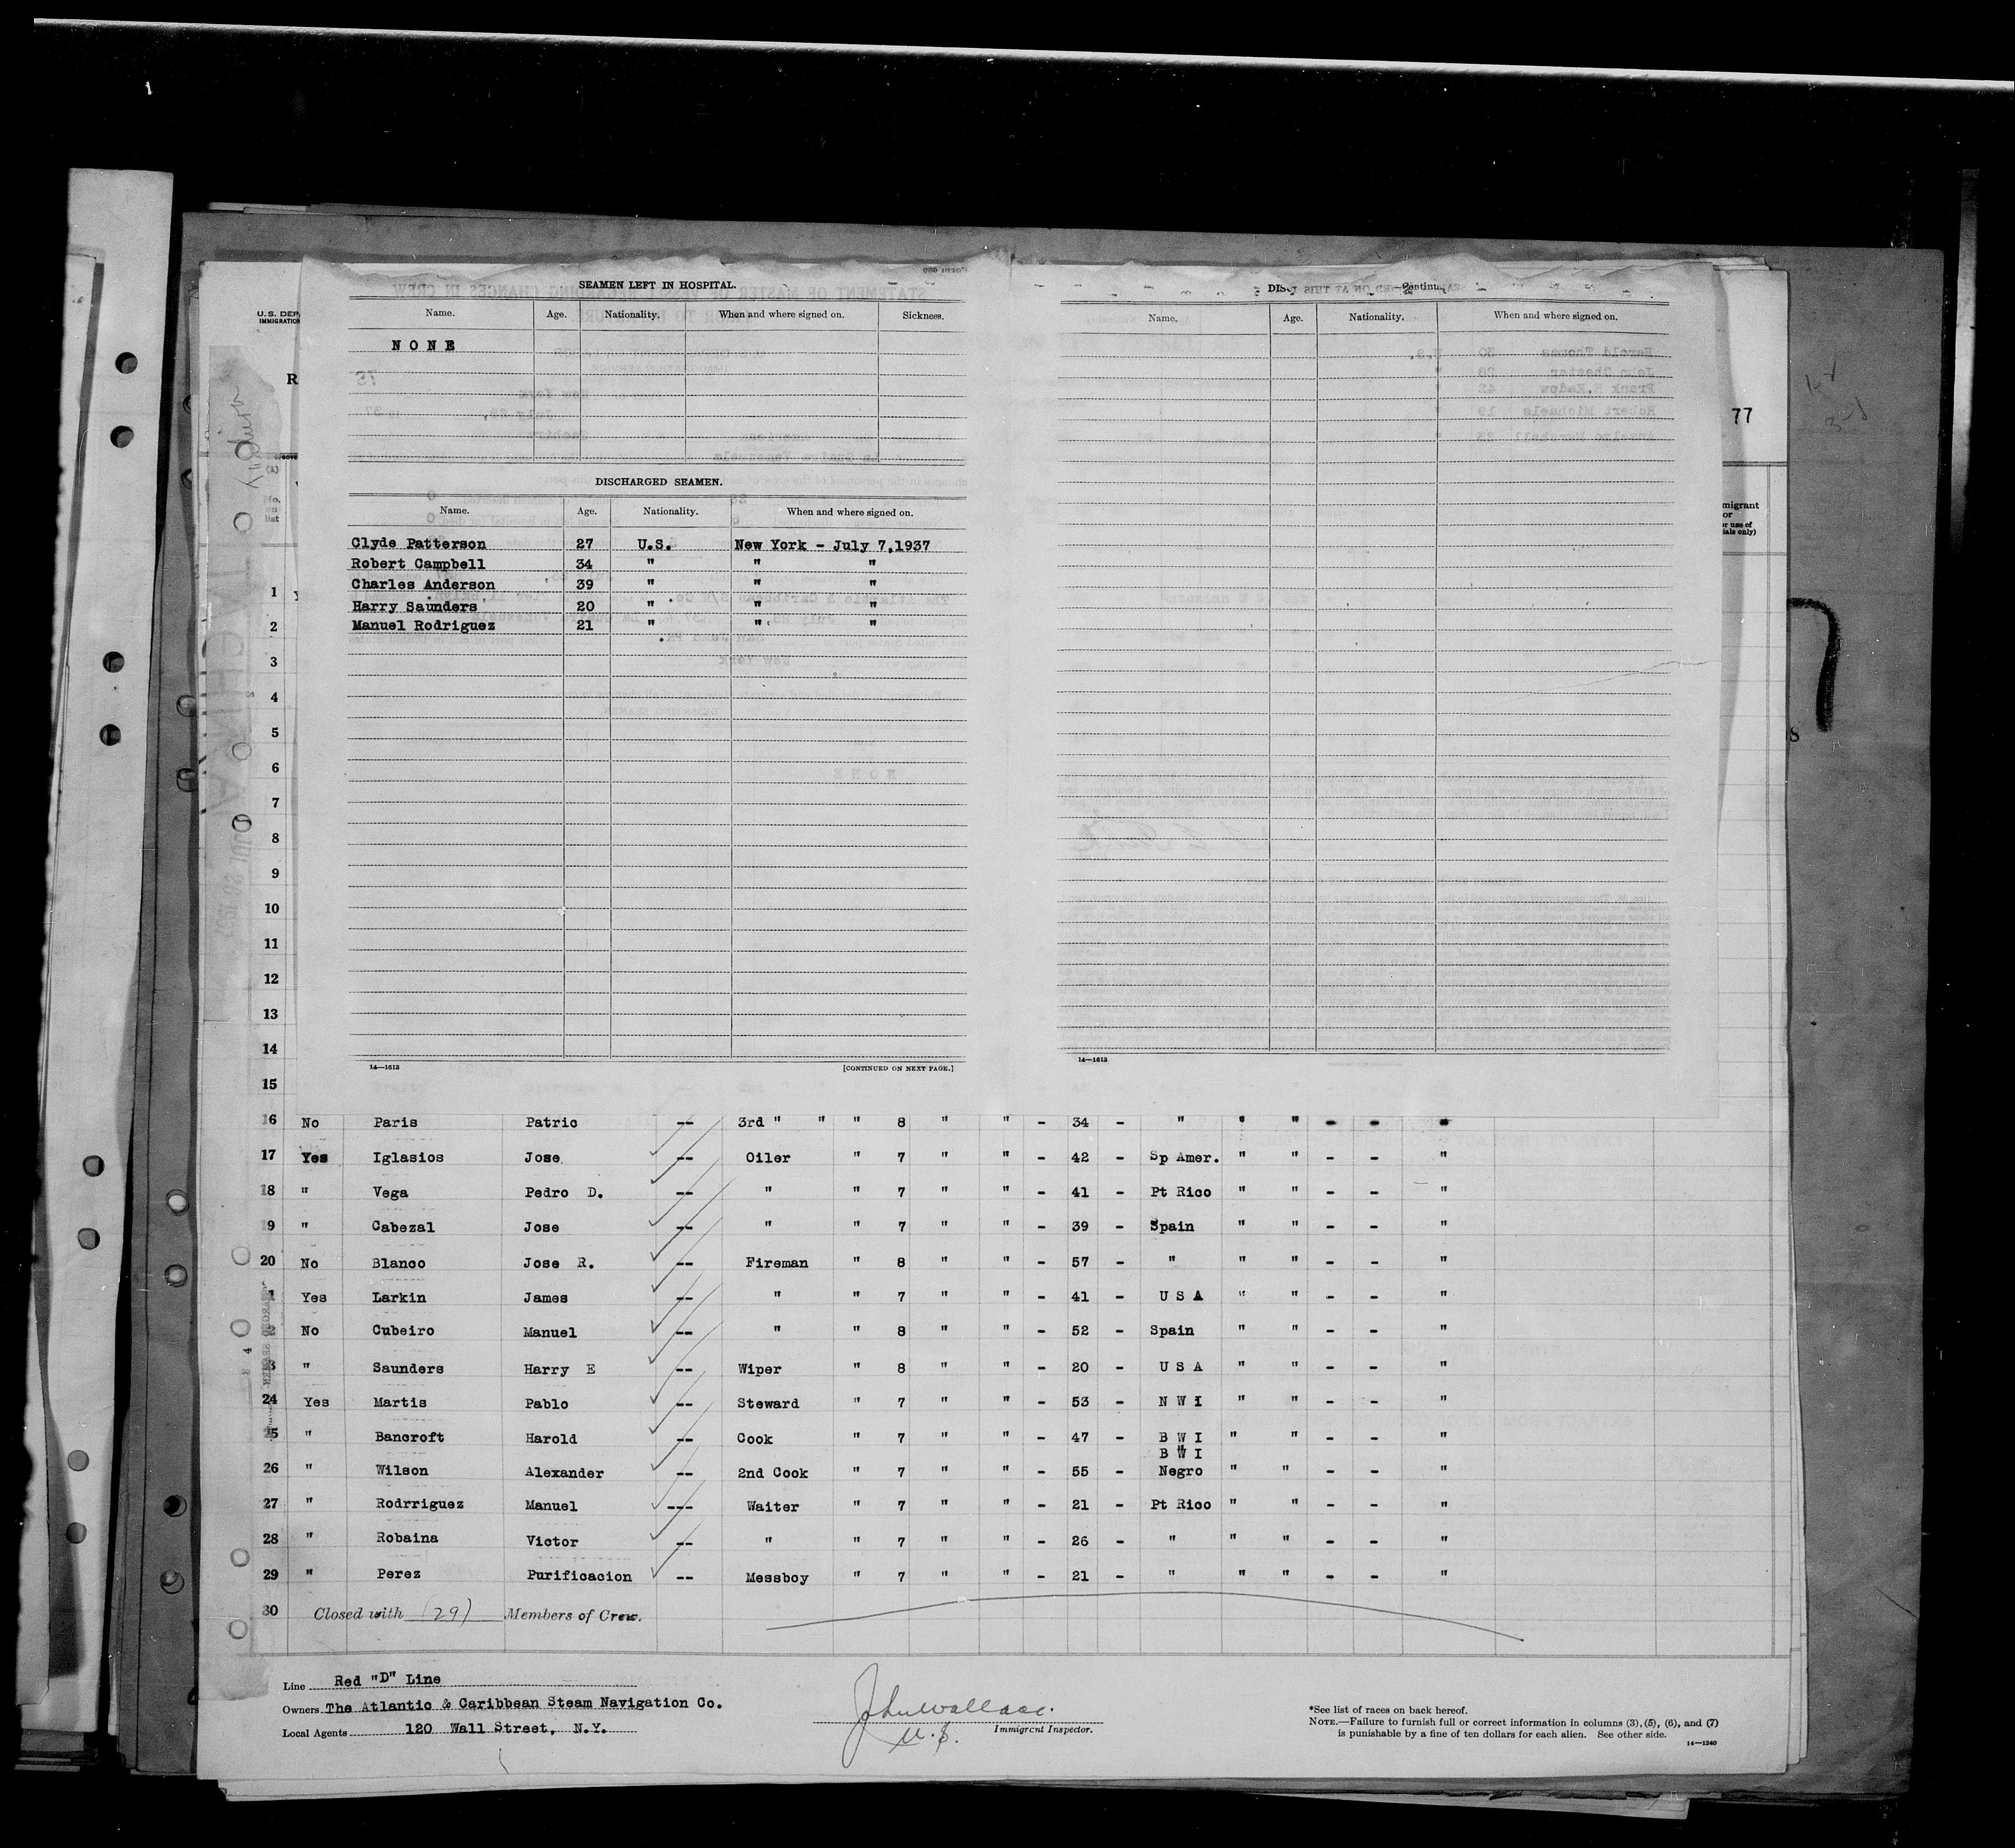 SEAMEN LEFT IN HOSPITAL.
Name. Age. Nationality. When and where signed on. Sickness.
N O N E
DISCHARGED SEAMEN.
Name. Age. Nationality. When and where signed on.
Clyde Patterson 27 U.S. New York - July 7,1937
Robert Campbell 34 " " "
Charles Anderson 39 " " "
Harry Saunders 20 " " "
Manuel Rodriguez 21 " " "
14—1613 [CONTINUED ON NEXT PAGE.]
Name. Age. Nationality. When and where signed on.
14—1613
77
U.S. DEP
IMMIGRATION
R
No. on list
migrant
or
r use of
ials only)
1
2
3
4
5
6
7
8
9
10
11
12
13
14
15
16 No Paris Patric -- 3rd " " " 8 " " - 34 - " " " - - "
17 Yes Iglasios Jose -- Oiler " 7 " " - 42 - Sp Amer. " " - - "
18 " Vega Pedro D. -- " " 7 " " - 41 - Pt Rico " " - - "
19 " Cabezal Jose -- " " 7 " " - 39 - Spain " " - - "
20 No Blanco Jose R. -- Fireman " 8 " " - 57 - " " " - - "
1 Yes Larkin James -- " " 7 " " - 41 - U S A " " - - "
2 No Cubeiro Manuel -- " " 8 " " - 52 - Spain " " - - "
3 " Saunders Harry E -- Wiper " 8 " " - 20 - U S A " " - - "
24 Yes Martis Pablo -- Steward " 7 " " - 53 - N W I " " - - "
25 " Bancroft Harold -- Cook " 7 " " - 47 - B W I " " - - "
B W I
26 " Wilson Alexander -- 2nd Cook " 7 " " - 55 - Negro " " - - "
27 " Rodrriguez Manuel --- Waiter " 7 " " - 21 - Pt Rico " " - - "
28 " Robaina Victor -- " " 7 " " - 26 - " " " - - "
29 " Perez Purificacion -- Messboy " 7 " " - 21 - " " " - - "
30 Closed with (29) Members of Crew.
Line Red "D" Line
Owners The Atlantic & Caribbean Steam Navigation Co.
Local Agents 120 Wall Street, N.Y.
John Wallace
Immigrant Inspector.
*See list of races on back hereof.
NOTE.—Failure to furnish full or correct information in columns (3), (5), (6), and (7)
is punishable by a fine of ten dollars for each alien. See other side.
14—1240